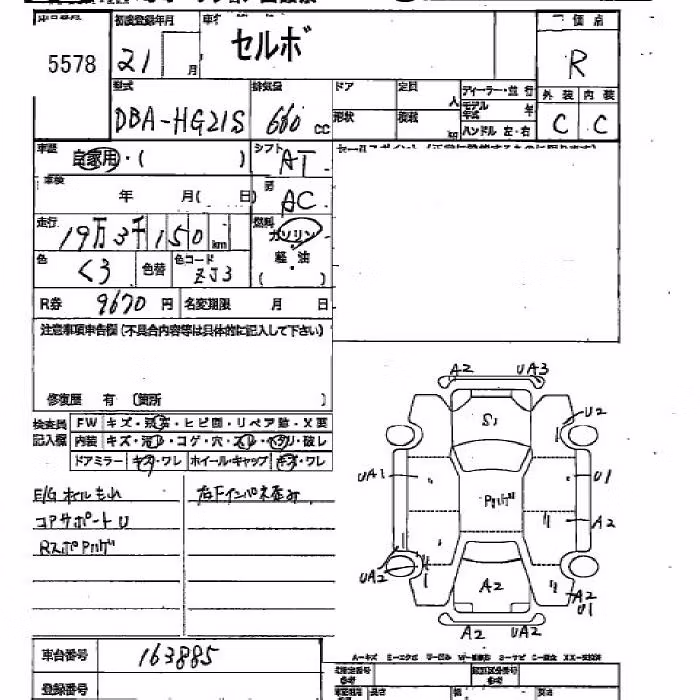 5578
初度登録年月
21 月
セルボ
評価点
R
型式
DBA-HG21S
排気量
660 cc
ドア
形状
定員
人
積載
kg
ディーラー・並行
モデル年式 年
ハンドル 左・右
外装 内装
C C
車歴
自家用・( )
シフト
AT
車検
年 月( 日)
AC
走行
19万3千150 km
燃料
ガソリン
・
軽・油
( )
色
クロ
色替
色コード
ZJ3
R券 9670 円 名変期限 月 日
注意事項申告欄(不具合内容等は具体的に記入して下さい)
修復歴 有 〔箇所 〕
検査員記入欄
FW キズ・線傷・ヒビ割・リペア跡・X要
内装 キズ・汚レ・コゲ・穴・スレ・ヘタリ・破レ
ドアミラー キズ・ワレ ホイール・キャップ キズ・ワレ
E/Gオイルもれ
コアサポートU
RスポPハゲ
右下インパネ歪み
A2 UA3
S1
U2
UA1
U1
Pハゲ
A2
UA2
A2
A2
U1
A2 UA2
車台番号 163885
登録番号
A-キズ